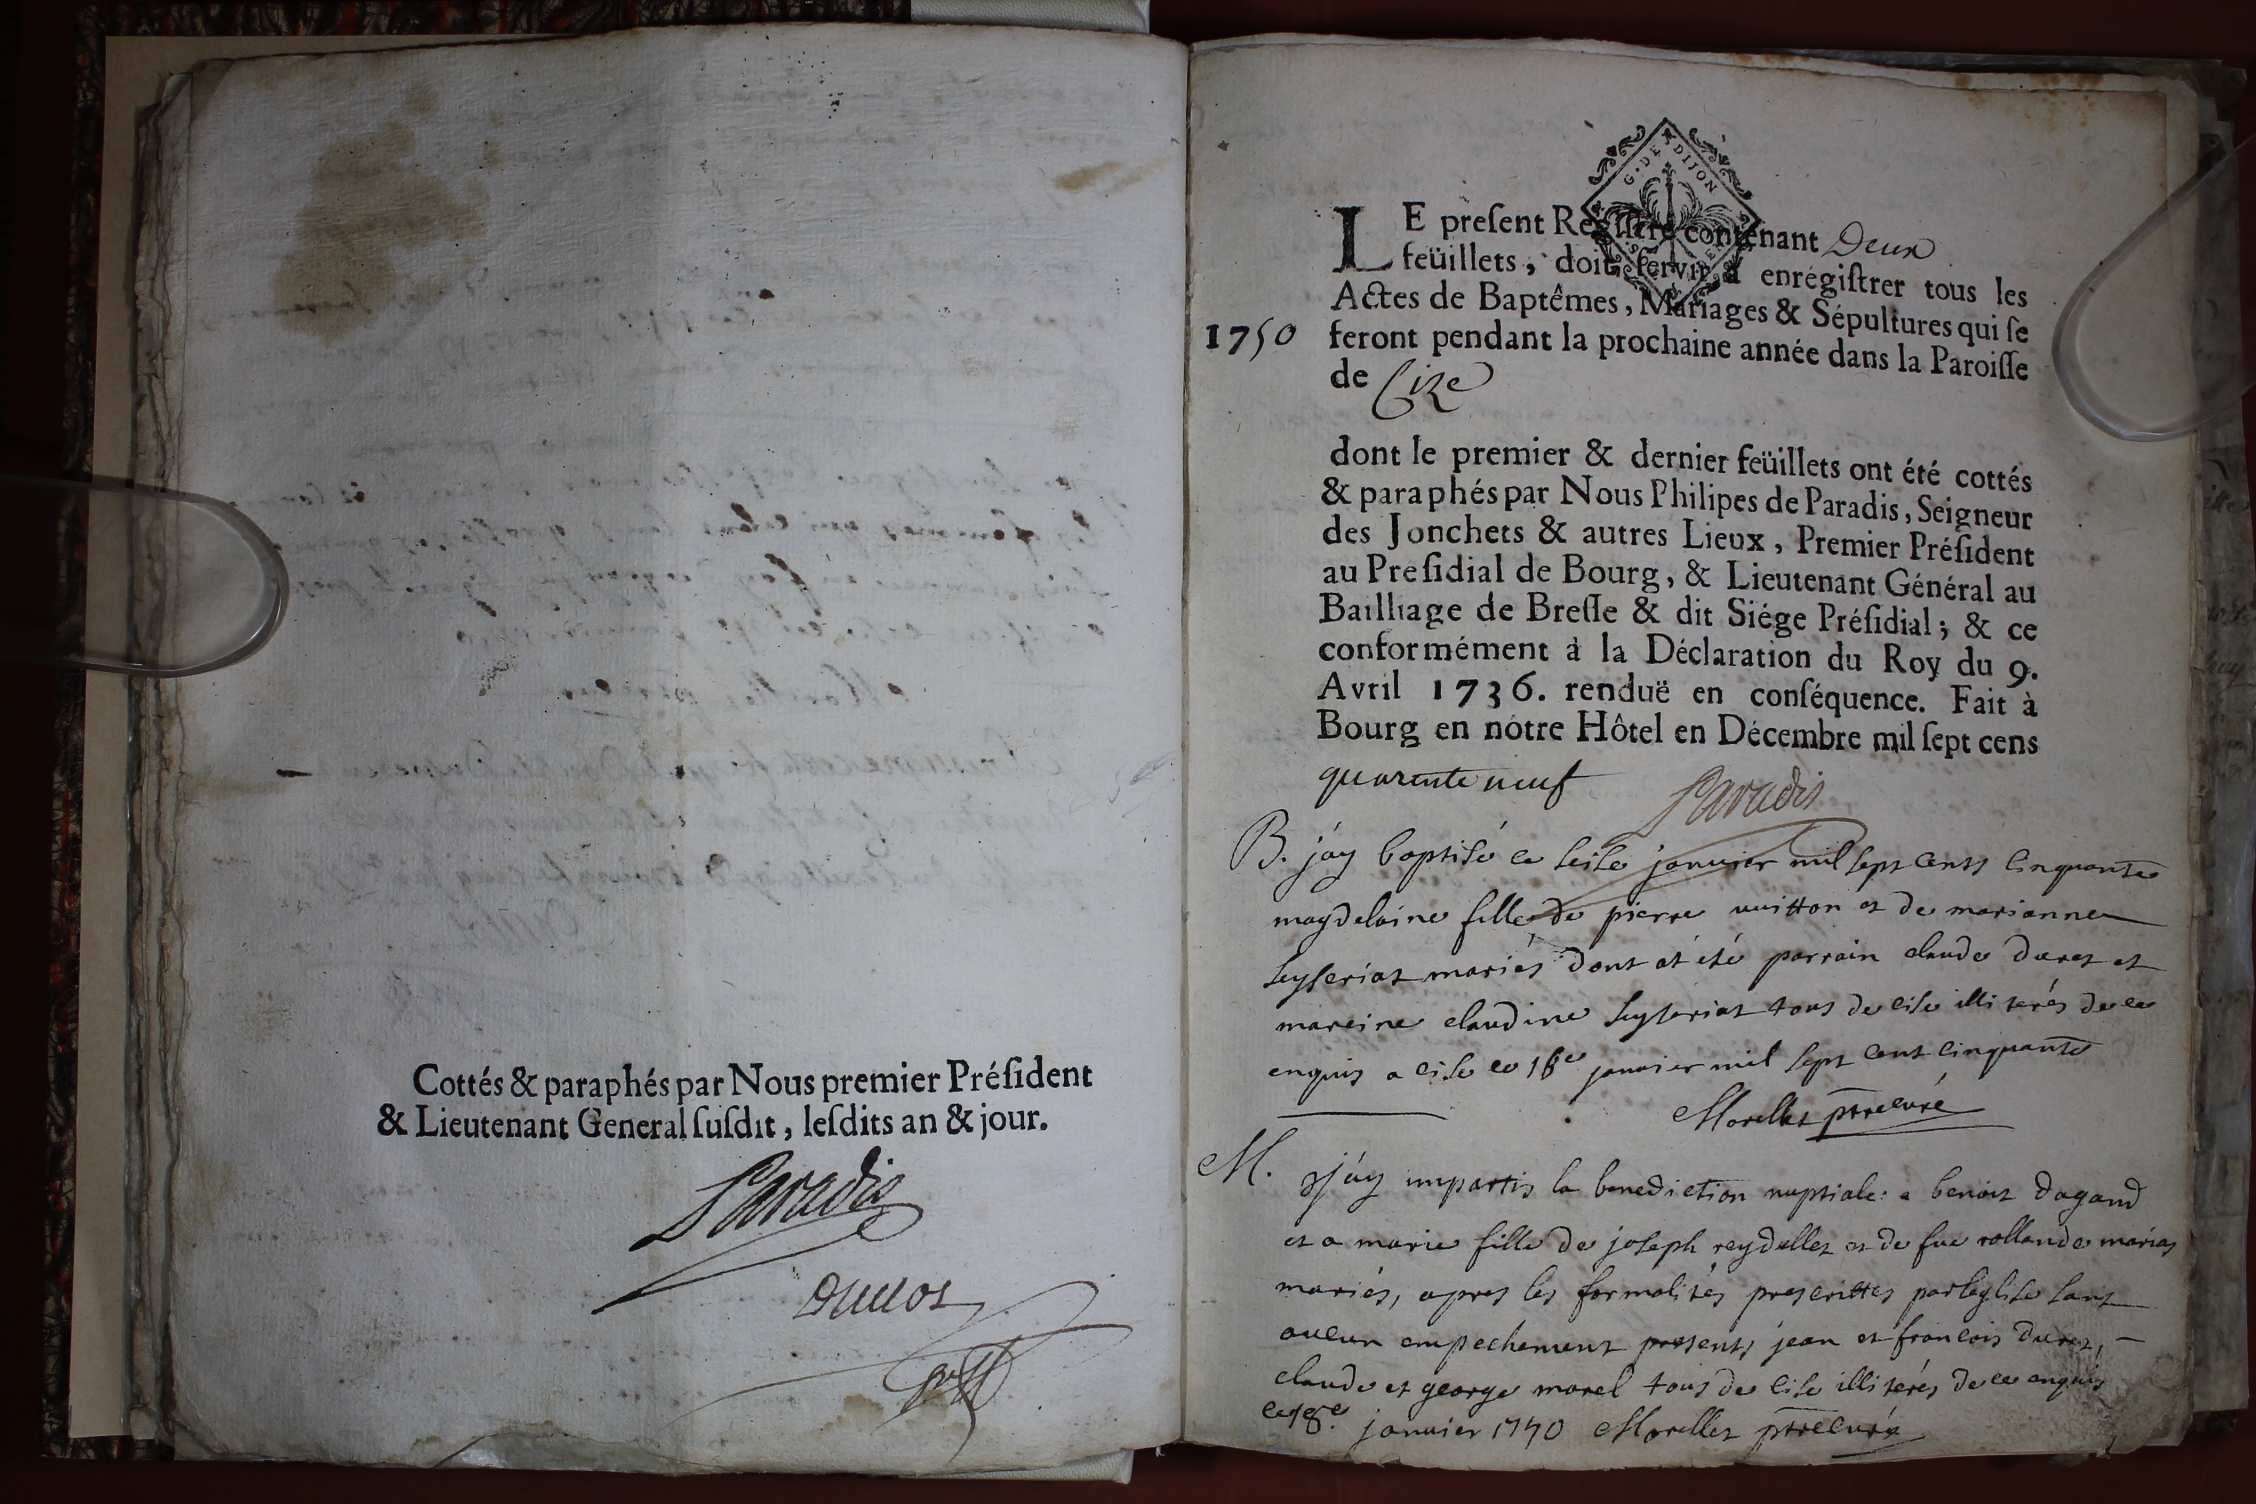 Cottés & paraphés par Nous premier Préſident
& Lieutenant General ſuſdit, leſdits an & jour.
Paradis
Duclos
G. DE DIJON
LE preſent Regiſtre contenant Deux
feüillets, doit ſervir à enrégiſtrer tous les
Actes de Baptêmes, Mariages & Sépultures qui ſe
1750 feront pendant la prochaine année dans la Paroiſſe
de Cize
dont le premier & dernier feüillets ont été cottés
& paraphés par Nous Philipes de Paradis, Seigneur
des Jonchets & autres Lieux, Premier Préſident
au Preſidial de Bourg, & Lieutenant Général au
Bailliage de Breſſe & dit Siége Préſidial; & ce
conformément à la Déclaration du Roy du 9.
Avril 1736. renduë en conſéquence. Fait à
Bourg en nótre Hôtel en Décembre mil ſept cens
quarente neuf
Paradis
B. j'ay baptisé ce seise janvier mil sept cents cinquante
magdelaine fille de pierre vuitton et de marianne
seyseriat mariés dont at été parrain claude duret et
mareine claudine seyseriat tous de cise illiterés de ce
enquis a cise ce 16e janvier mil sept cent cinquante
Morellet ptre curé
M. j'ay impartis la benediction nuptiale a benoit dagand
et a marie fille de joseph reydellet et de fue rollande marias
mariés, apres les formalités prescrittes par leglise sans
aucun empechement presents jean et francois duret,
claude et george morel tous de cise illiterés de ce enquis
ce 18e. janvier 1750 Morellet ptre curé